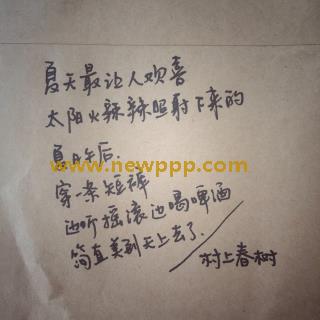 夏天最让人欢喜
太阳火辣辣照射下来的
夏日午后.
www.newppp.com
穿一条短裤
边听摇滚边喝啤酒
简直美到天上去了.
村上春树